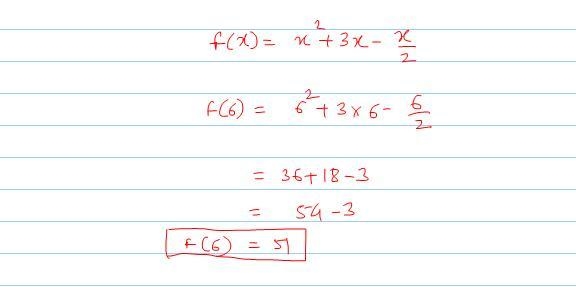 f(x) = x² + 3x - x/2
f(6) = 6² + 3 × 6 - 6/2
= 36 + 18 - 3
= 54 - 3
f(6) = 51